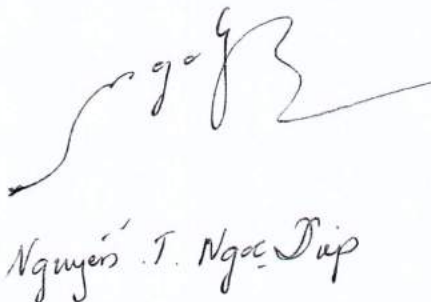 Nguyễn T. Ngọc Diệp